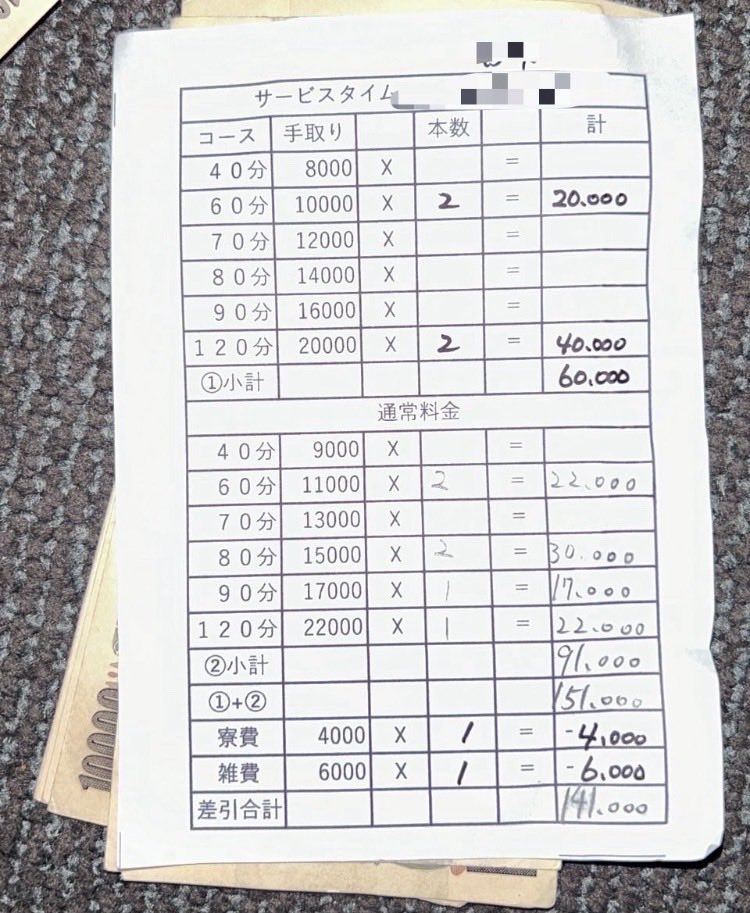 サービスタイム
コース 手取り 本数 計
40分 8000 X =
60分 10000 X 2 = 20.000
70分 12000 X =
80分 14000 X =
90分 16000 X =
120分 20000 X 2 = 40.000
①小計 60.000
通常料金
40分 9000 X =
60分 11000 X 2 = 22.000
70分 13000 X =
80分 15000 X 2 = 30.000
90分 17000 X 1 = 17.000
120分 22000 X 1 = 22.000
②小計 91.000
①+② 151.000
寮費 4000 X 1 = -4,000
雑費 6000 X 1 = -6.000
差引合計 141.000
10000